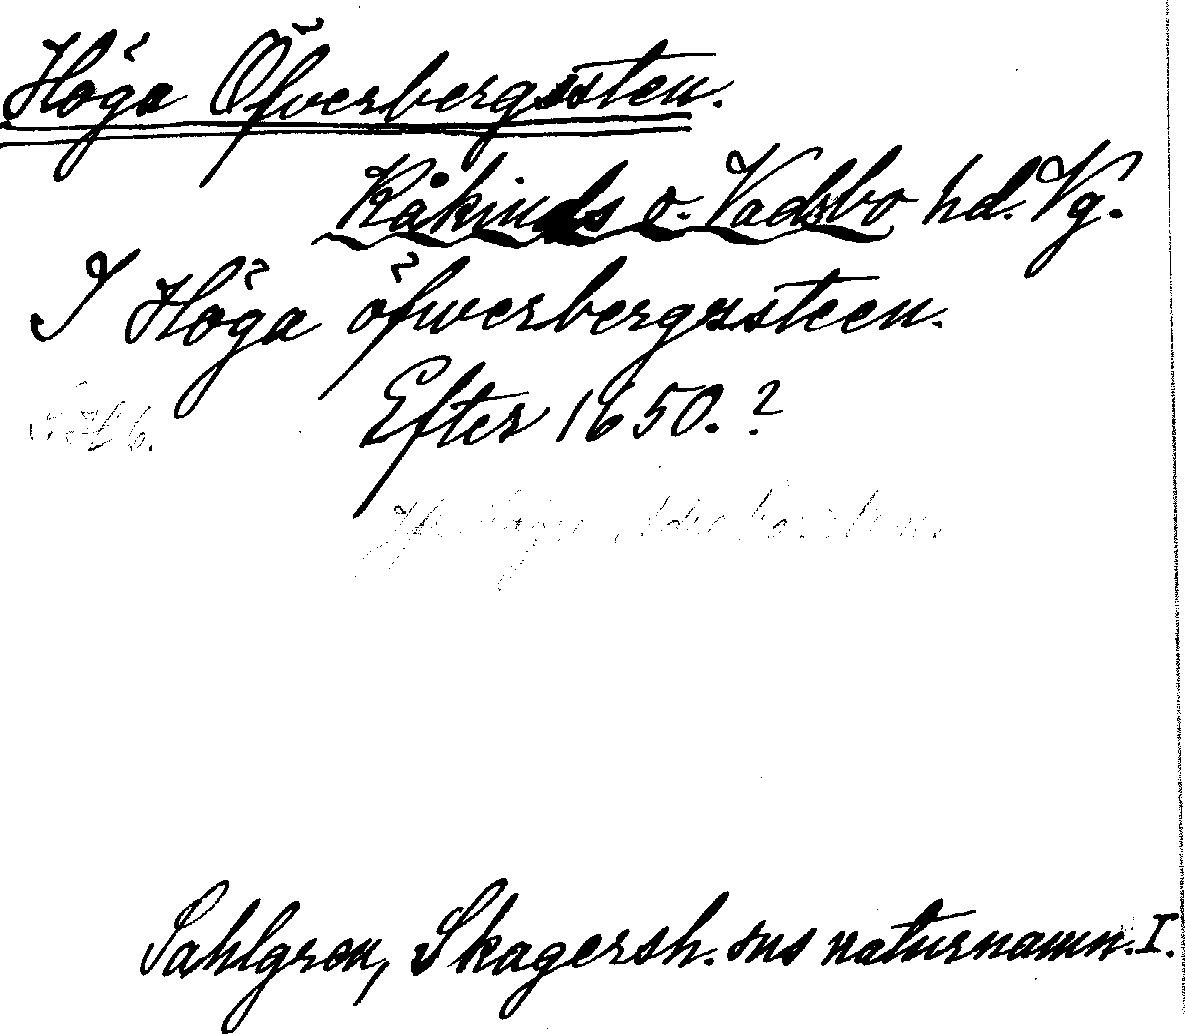 Höga Öfverbergssten.
Kåkinds o. Vadsbo hd. Vg.
I Höga öfwerbergzsteen.
Efter 1650.?
Sahlgren, Skagersh. sns naturnamn. I.